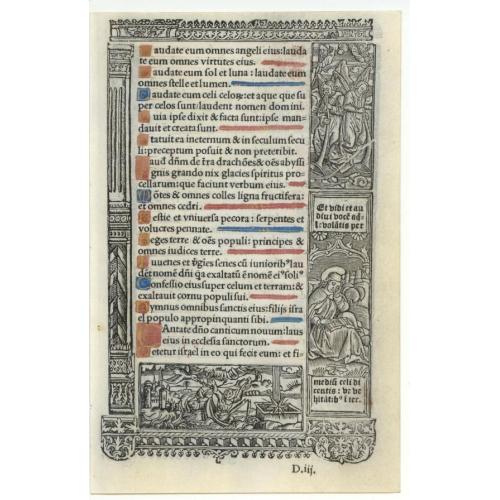 audate eum omnes angeli eius: lauda
te eum omnes virtutes eius.
audate eum sol et luna: laudate eum
omnes stelle et lumen.
audate eum celi celoꝝ: et aque que su
per celos sunt: laudent nomen domini.
uia ipse dixit & facta sunt: ipse man
dauit et creata sunt.
tatuit ea in eternum & in seculum secu
li: preceptum posuit & non preteribit.
aud dñm de tra drachões & oẽs abyssi
gnis grando nix glacies spiritus pro
cellarum: que faciunt verbum eius.
õtes & omnes colles ligna fructifera:
et omnes cedri.
estie et vniuersa pecora: serpentes et
volucres pennate.
eges terre & oẽs populi: principes &
omnes iudices terre.
uuenes et senes cũ iuniorib9 lau
det nomẽ dñi qa exaltatũ ẽ nomẽ ei9 soli9
onfessio eius super celum et terram: &
exaltauit cornu populi sui.
ymnus omnibus sanctis eius: filijs isra
el populo appropinquanti sibi.
Antate dño canticum nouum: laus
eius in ecclesia sanctorum.
etetur israel in eo qui fecit eum: et fi-
Et vidi et au
diui vocẽ
volãtis per
medium celi di
centis: ve ve
D.iij.